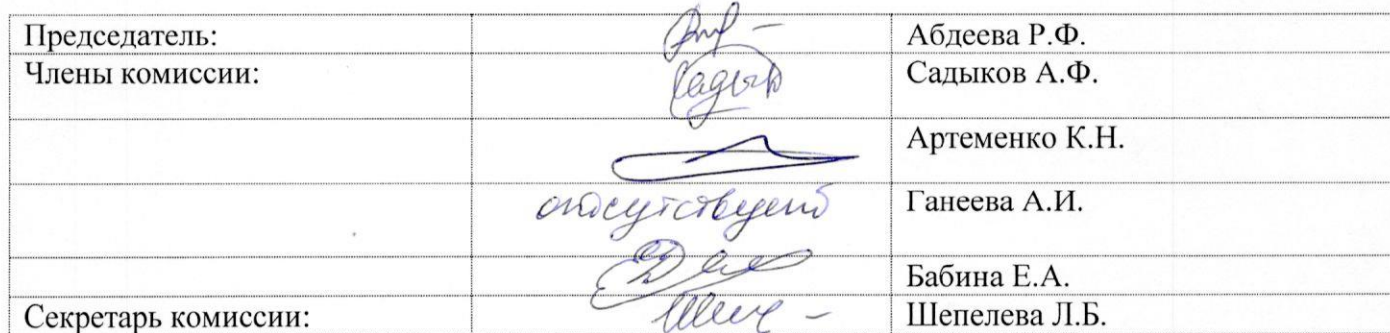 Председатель: Абдеева Р.Ф.
Члены комиссии: Садыков А.Ф.
Артеменко К.Н.
отсутствует Ганеева А.И.
Бабина Е.А.
Секретарь комиссии: Шепелева Л.Б.